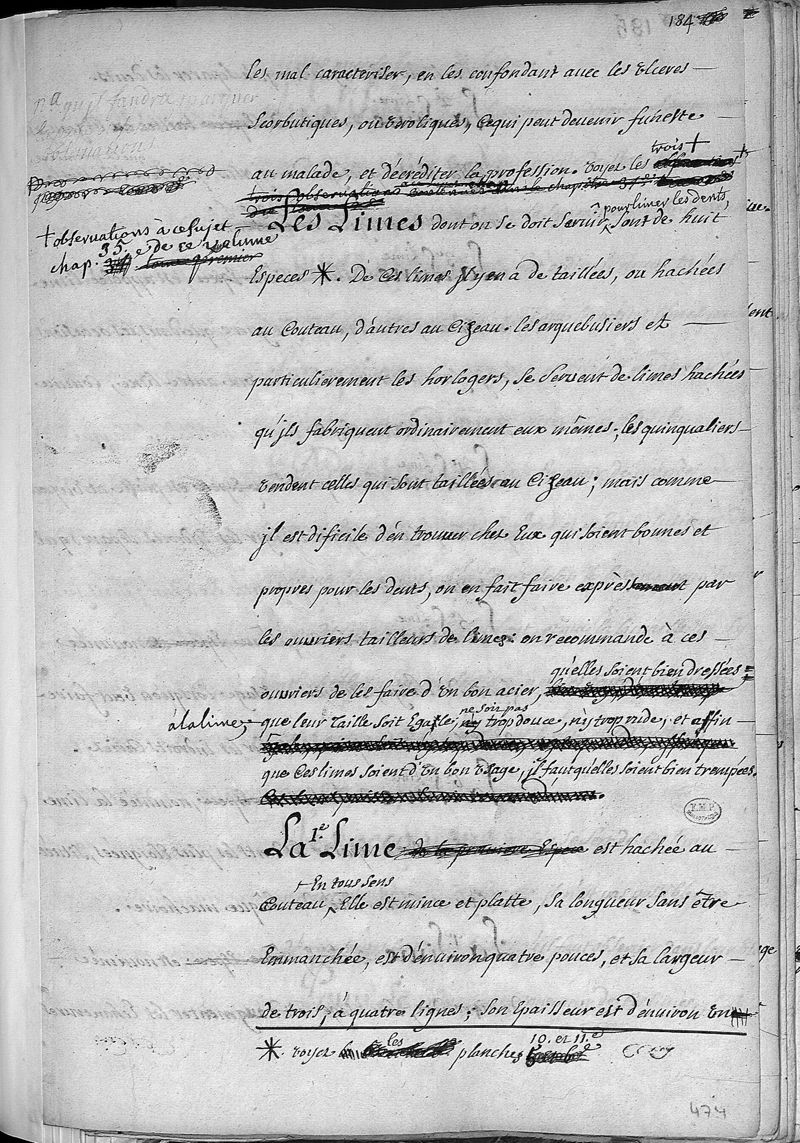 184
les mal caracteriser, en les confondant avec les Ulceres
Scorbutiques, ou veroliques, Ce qui peut devenir funeste
au malade, et décréditer la profession. voyez les trois +
+ observations à ce sujet
chap. 35.e de ce volume
Les Limes dont on se doit servir pour limer les dents, sont de huit
Especes *. De Ces limes jl y en a de taillées, ou hachées
au Couteau, d'autres au Cizeau. les arquebusiers et
particulierement les horlogers, se servent de limes hachées
qu'jls fabriquent ordinairement eux mêmes; les quinqualiers
vendent celles qui sont taillées au Cizeau; mais comme
jl est dificile d'en trouver chez Eux qui soient bonnes et
propres pour les dents, on en fait faire exprès par
les ouvriers tailleurs de limes: on recommande à ces
ouvriers de les faire d'un bon acier, qu'elles soient bien dressées
à la lime,
que leur Taille soit Egalle, ne soit pas trop douce, ny trop rude, et affin
que Ces limes soient d'un bon Usage, jl faut qu'elles soient bien trempées.
La 1.e Lime est hachée au
Couteau + En tous sens Elle est mince et platte, sa longueur sans être
Emmanchée, est d'environ quatre pouces, et sa largeur
de trois, à quatre lignes; son Epaisseur est d'environ un
* voyez les planches 10. et 11.e
474